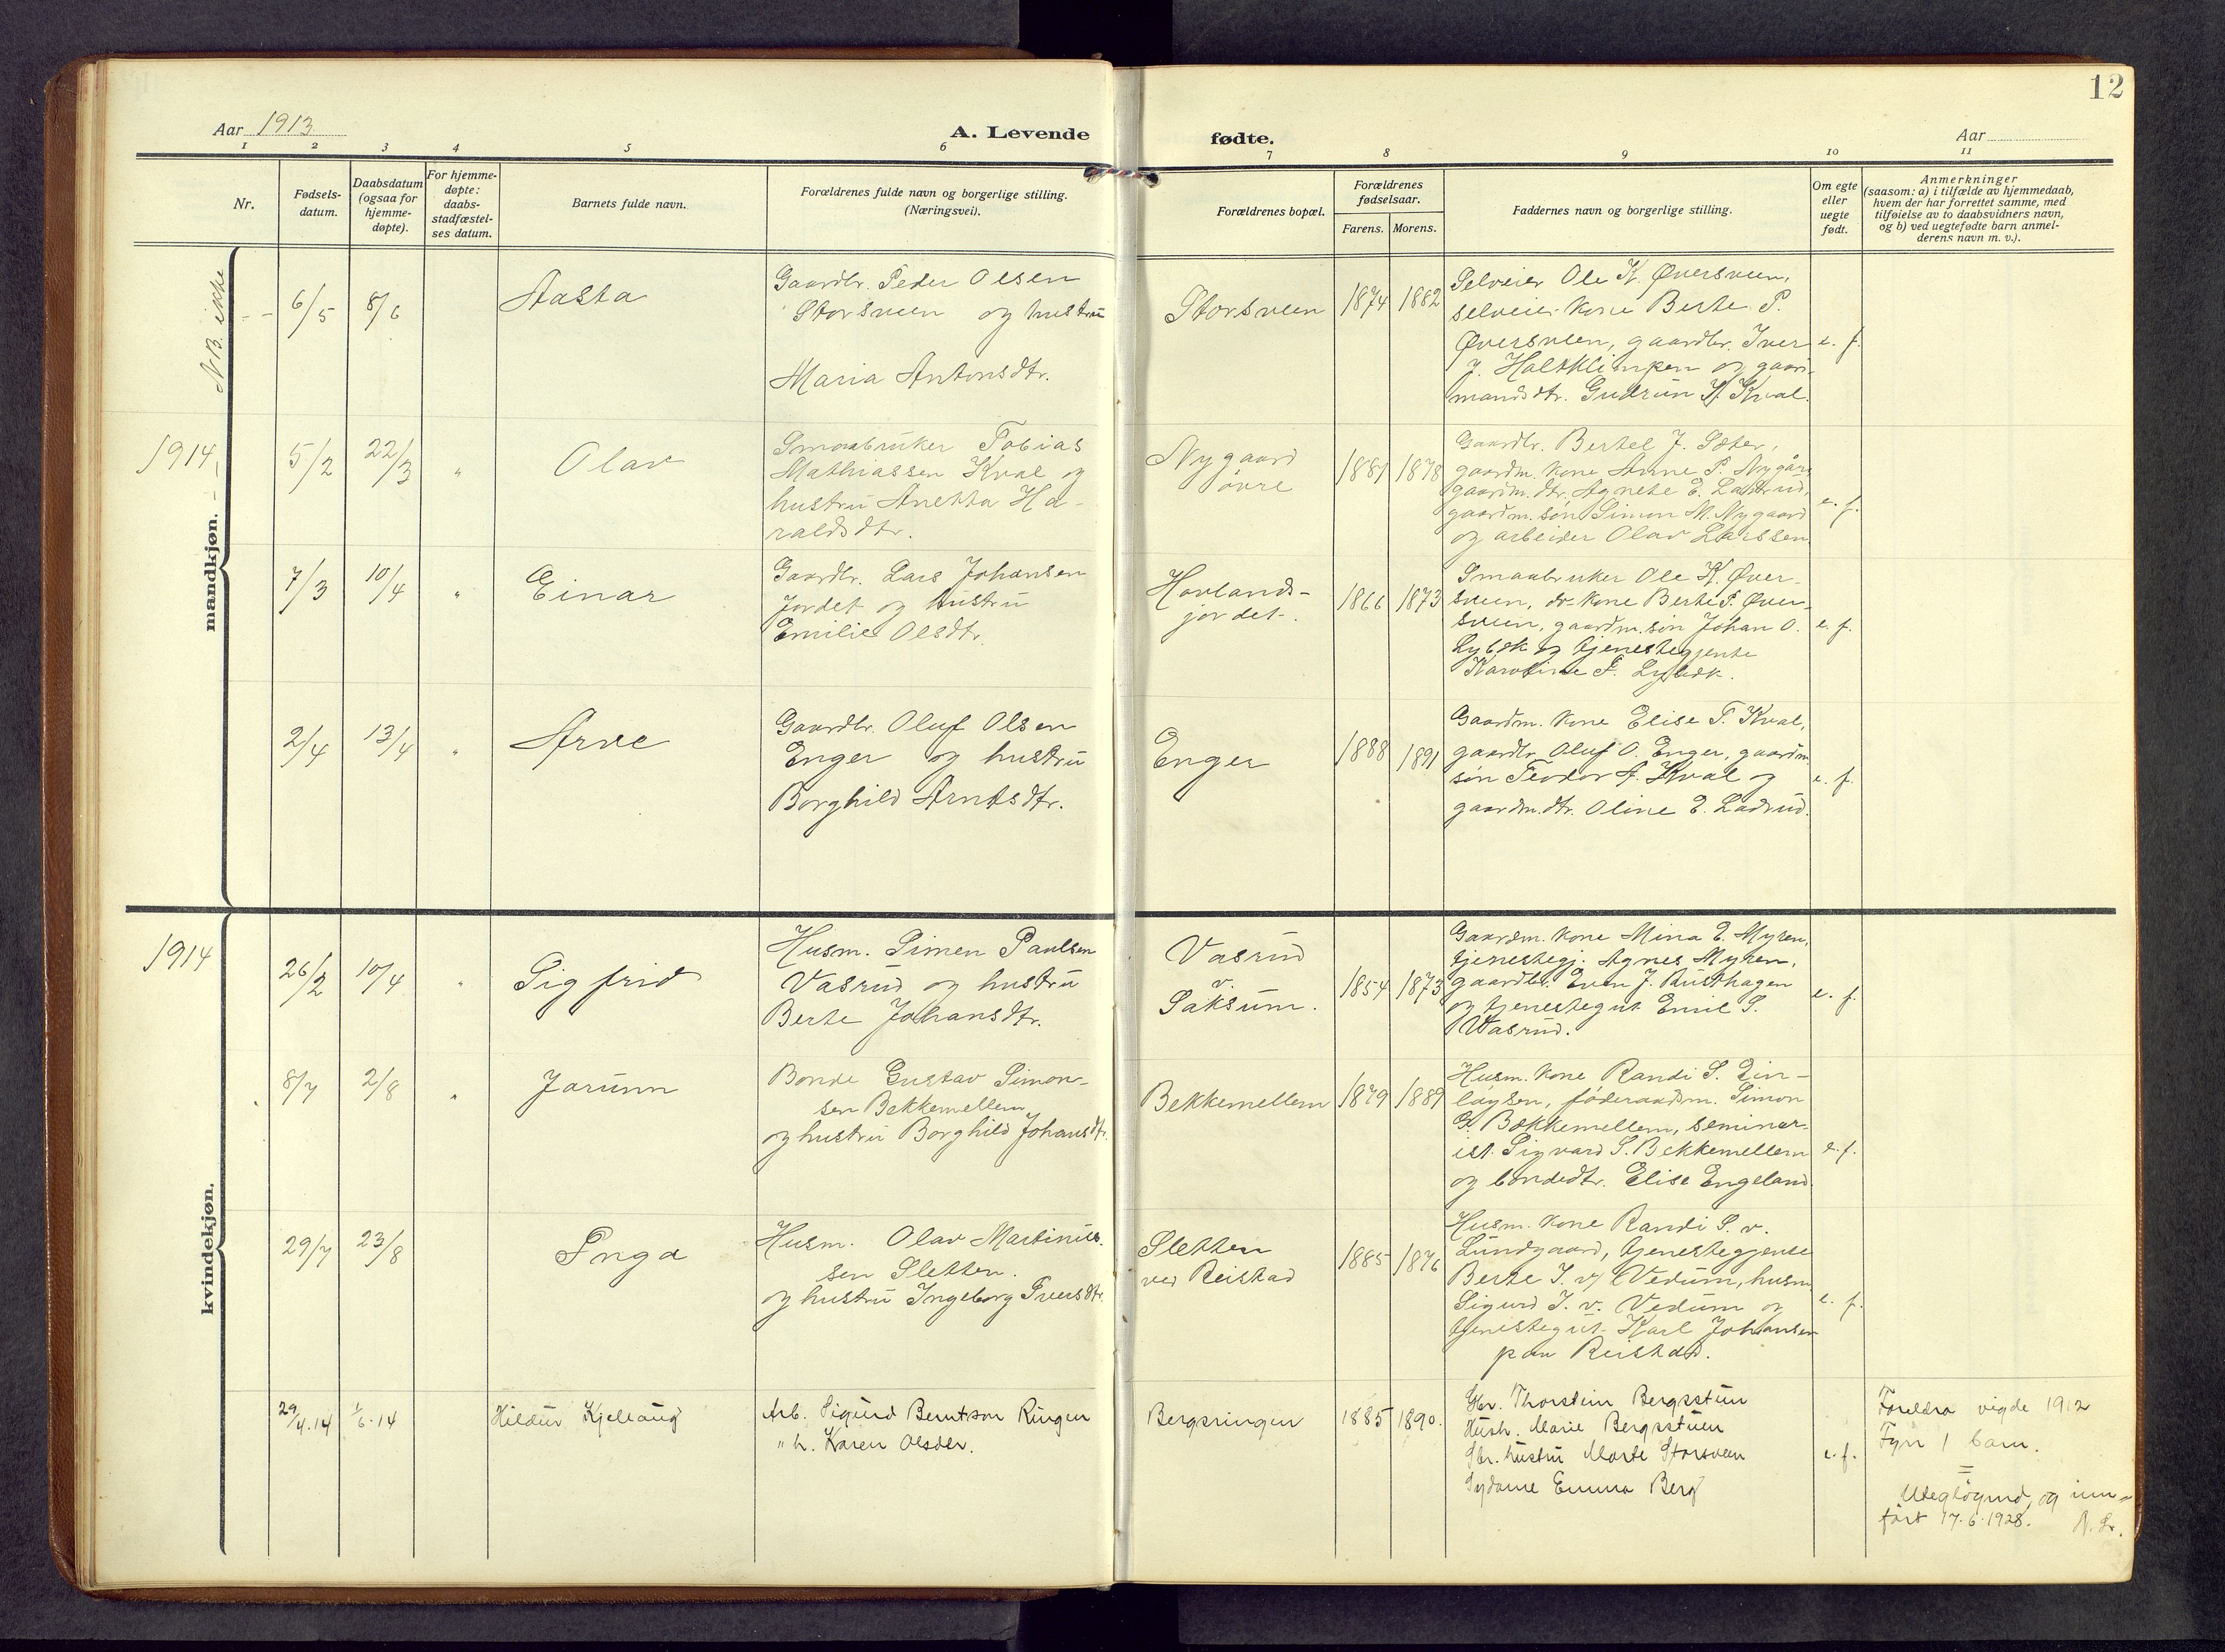 12
Aar 1913
A. Levende fødte.
Aar
1 2 3 4 5 6 7 8 9 10 11
Nr.
Fødsels-
datum.
Daabsdatum
(ogsaa for
hjemme-
døpte).
For hjemme-
døpte:
daabs-
stadfæstel-
ses datum.
Barnets fulde navn.
Forældrenes fulde navn og borgerlige stilling.
(Næringsvei).
Forældrenes bopæl.
Forældrenes
fødselsaar.
Farens. Morens.
Faddernes navn og borgerlige stilling.
Om egte
eller
uegte
født.
Anmerkninger
(saasom: a) i tilfælde av hjemmedaab,
hvem der har forrettet samme, med
tilføielse av to daabsvidners navn,
og b) ved uegtefødte barn anmel-
derens navn m. v.).
mandkjøn.
N.B. ikke
6/5
8/6
Aasta
Gaardbr. Peder Olsen
Storsveen og hustru
Maria Antonsdtr.
Storsveen
1874
1882
Selveier Ole K. Øversveen,
selveier kone Berte P.
Øversveen, gaardbr. Iver
J. Holtklimpen og gaard-
mandsdtr. Gudrun K. Kval.
e. f.
1914
5/2
22/3
"
Olav
Smaabruker Tobias
Mathiassen Kval og
hustru Anetta Ha-
raldsdtr.
Nygaard
øvre
1881
1878
Gaardbr. Bertel J. Sæter,
gaardm. kone Anne P. Nygård
gaardm. dtr. Agnete E. Ladsrud,
gaardm. søn Simon M. Nygaard
og arbeider Olav Larssen
e. f.
7/3
10/4
"
Einar
Gaardbr. Lars Johansen
Jordet og hustru
Emilie Olsdtr.
Hovlands-
jordet.
1866
1873
Smaabruker Ole K. Øver-
sveen, do kone Berte P. Øver-
sveen, gaardm. søn Johan O.
Lybæk og tjenestegjente
Karoline P. Lybæk.
e. f.
2/4
13/4
"
Arve
Gaardbr. Oluf Olsen
Enger og hustru
Borghild Arntsdtr.
Enger
1888
1891
Gaardm. kone Elise T. Kval,
gaardbr. Oluf O. Enger, gaardm.
søn Teodor A. Kval og
gaardm. dtr. Oline E. Ladsrud.
e. f.
kvindekjøn.
1914
26/2
10/4
"
Sigfrid
Husm. Simen Paulsen
Vasrud og hustru
Berte Johansdtr.
Vasrud
v.
Saksum.
1854
1873
Gaardm. kone Mina E. Myren,
tjenestegj. Agnes Myren,
gaardbr. Even J. Rusthagen
og tjenestegut Emil S.
Vasrud.
e. f.
8/7
2/8
"
Jorunn
Bonde Gustav Simon-
sen Bekkemellem
og hustru Borghild Johansdtr.
Bekkemellem
1879
1889
Husm. kone Randi S.
føderaadsm. Simon
G. Bækkemellem, seminar-
ist Sigvard S. Bekkemellem
og bondedtr. Elise Engeland.
e. f.
29/7
23/8
Inga
Husm. Olav Martinus-
sen Sletten.
og hustru Ingeborg Iversdtr.
Sletten
ved Reistad
1885
1876
Husm. kone Randi S. v.
Lundgaard, tjenestegjente
Berte I. v/ Vedum, husm.
Sigurd I. v. Vedum og
tjenestegut Karl Johansen
paa Reistad.
e. f.
29/4.14
1/6.14
Hildur Kjellaug
Arb. Sigurd Berntson Ringen
" h. Karen Olsdtr.
Bergsringen
1885
1890.
Gbr. Thorstein Bergsstuen
Hush. Marie Bergsstuen
Gbr. hustru Marte Storsveen
Sydame Emma Berg
e. f.
Foreldra vigde 1912
Fyrr 1 barn.
=
Utegløymd, og inn-
ført 17.6.1928.